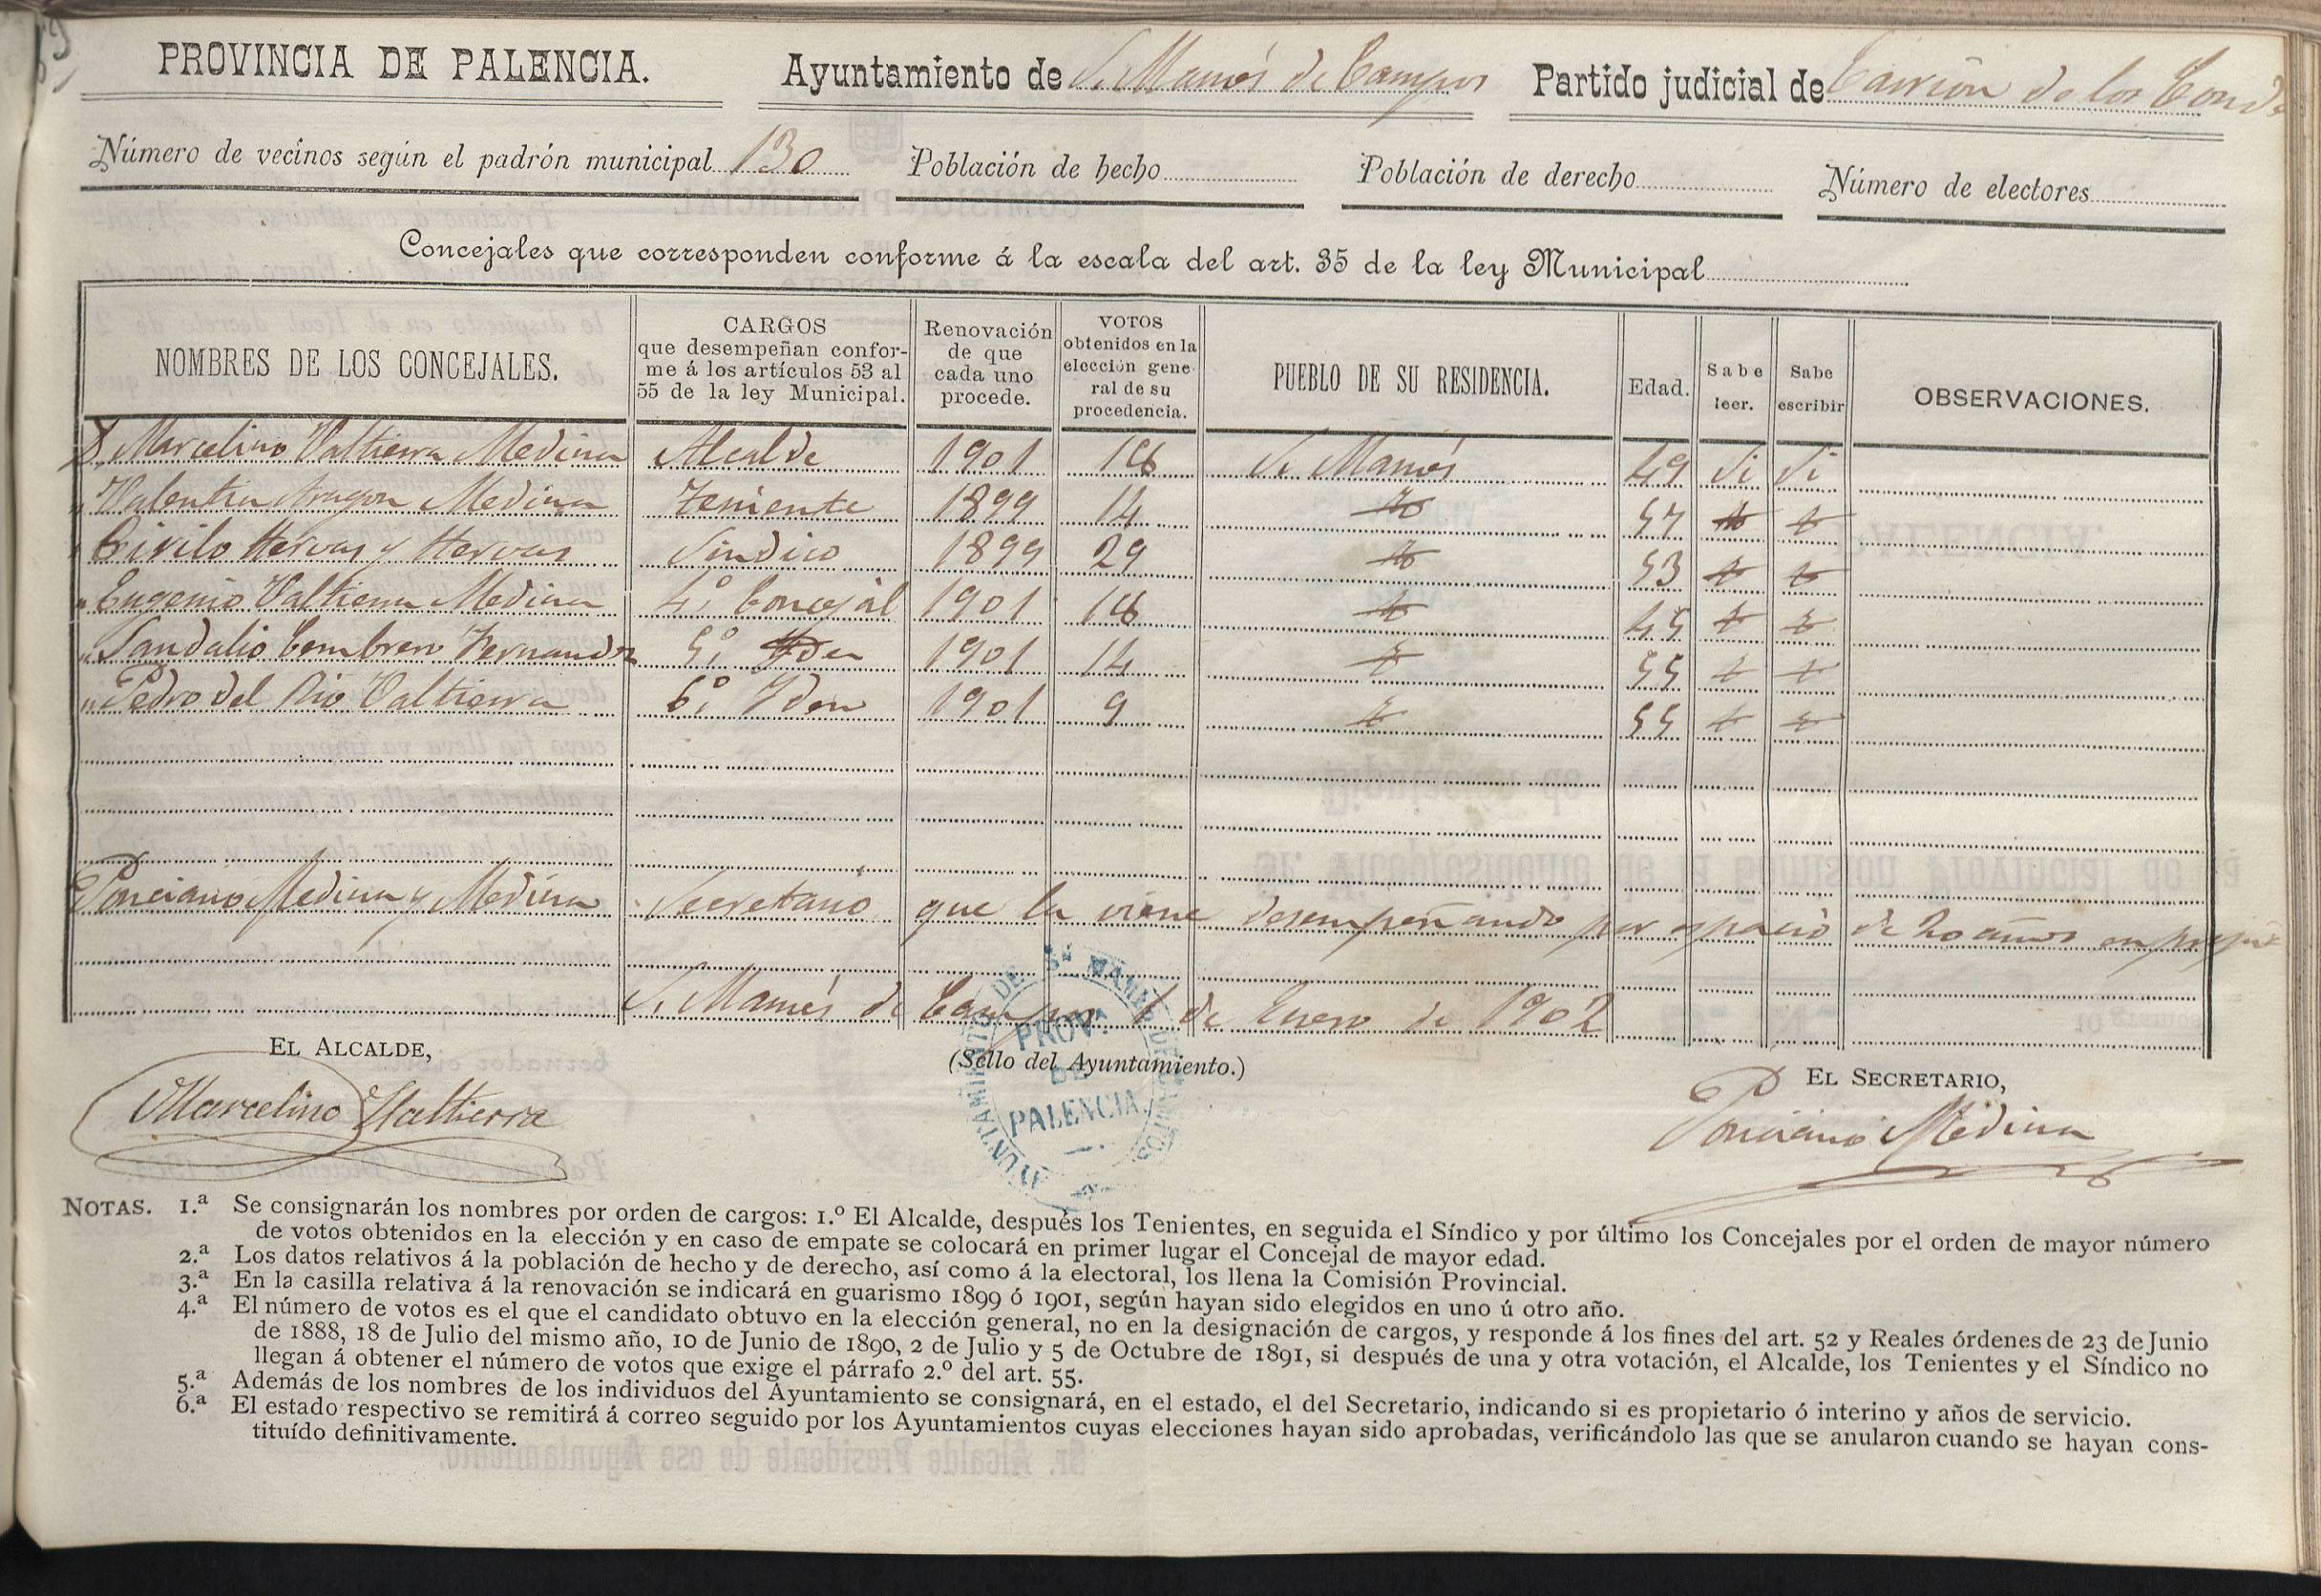 PROVINCIA DE PALENCIA. Ayuntamiento de S. Mamés de Campos Partido judicial de Carrión de los Conde
Número de vecinos según el padrón municipal 130 Población de hecho Población de derecho Número de electores
Concejales que corresponden conforme á la escala del art. 35 de la ley Municipal
NOMBRES DE LOS CONCEJALES. CARGOS que desempeñan conforme á los artículos 53 al 55 de la ley Municipal. Renovación de que cada uno procede. VOTOS obtenidos en la elección general de su procedencia. PUEBLO DE SU RESIDENCIA. Edad. Sabe leer. Sabe escribir OBSERVACIONES.
D. Marcelino Valtierra Medina Alcalde 1901 16 S. Mamés 49 Si Si
" Valentin Aragon Medina Teniente 1899 14 57
" Cirilo Hervas y Hervas Sindico 1899 29 53
" Eugenio Valtierra Medina 4.º Concejal 1901 16 45
" Sandalio Cembrero Fernandz 5.º Iden 1901 14 55
" Pedro del Rio Valtierra 6.º Iden 1901 9 55
Ponciano Medina y Medina Secretario que la viene desempeñando por espacio de 20 años en
S. Mamés de Campos 1 de Enero de 1902
EL ALCALDE, (Sello del Ayuntamiento.) EL SECRETARIO,
Marcelino Valtierra Ponciano Medina
AYUNTAMIENTO DE Sn MAMES DE CAMPOS
PROVA
DE
PALENCIA.
NOTAS. 1.ª Se consignarán los nombres por orden de cargos: 1.º El Alcalde, después los Tenientes, en seguida el Síndico y por último los Concejales por el orden de mayor número
de votos obtenidos en la elección y en caso de empate se colocará en primer lugar el Concejal de mayor edad.
2.ª Los datos relativos á la población de hecho y de derecho, así como á la electoral, los llena la Comisión Provincial.
3.ª En la casilla relativa á la renovación se indicará en guarismo 1899 ó 1901, según hayan sido elegidos en uno ú otro año.
4.ª El número de votos es el que el candidato obtuvo en la elección general, no en la designación de cargos, y responde á los fines del art. 52 y Reales órdenes de 23 de Junio
de 1888, 18 de Julio del mismo año, 10 de Junio de 1890, 2 de Julio y 5 de Octubre de 1891, si después de una y otra votación, el Alcalde, los Tenientes y el Síndico no
llegan á obtener el número de votos que exige el párrafo 2.º del art. 55.
5.ª Además de los nombres de los individuos del Ayuntamiento se consignará, en el estado, el del Secretario, indicando si es propietario ó interino y años de servicio.
6.ª El estado respectivo se remitirá á correo seguido por los Ayuntamientos cuyas elecciones hayan sido aprobadas, verificándolo las que se anularon cuando se hayan cons-
tituído definitivamente.